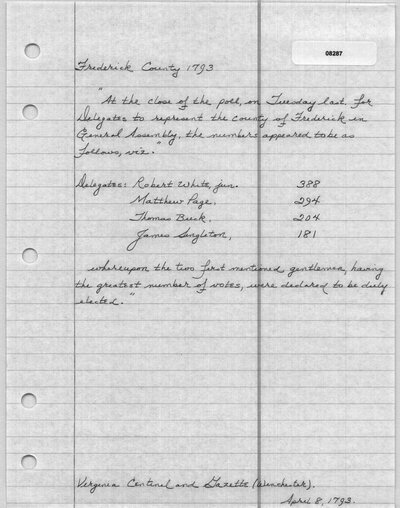 08287
Frederick County 1793
"At the close of the poll, on Tuesday last, for
Delegates to represent the county of Frederick in
General Assembly, the numbers appeared to be as
follows, viz."
Delegates: Robert White, jun. 388
Matthew Page. 294
Thomas Buck. 204
James Singleton, 181
whereupon the two first mentioned gentlemen, having
the greatest number of votes, were declared to be duly
elected."
Virginia Centinel and Gazette (Winchester).
April 8, 1793.